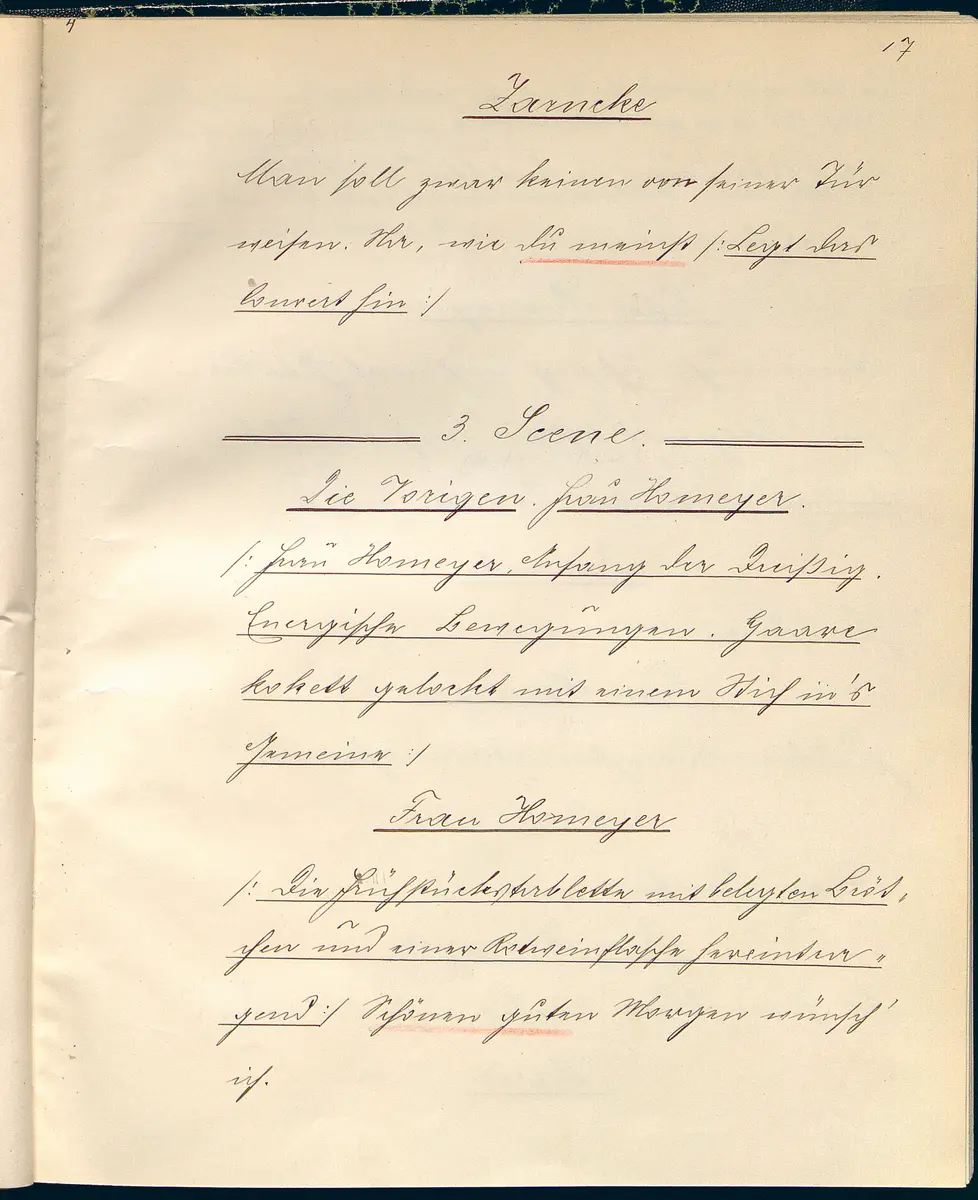 4
17
Zarncke
Man soll zwar keinen von seiner Tür
weisen. Na, wie du meinst /: Legt das
Couvert hin :/
3. Scene.
Die Vorigen. Frau Homeyer.
/: Frau Homeyer, Anfang der Dreißig.
Energische Bewegungen. Haare
kokett gelockt mit einem Stich in's
Gemeine :/
Frau Homeyer
/: Die Frühstückstablette mit belegten Bröt-
chen und einer Rotweinflasche hereintra-
gend :/ Schönen guten Morgen wünsch'
ich.